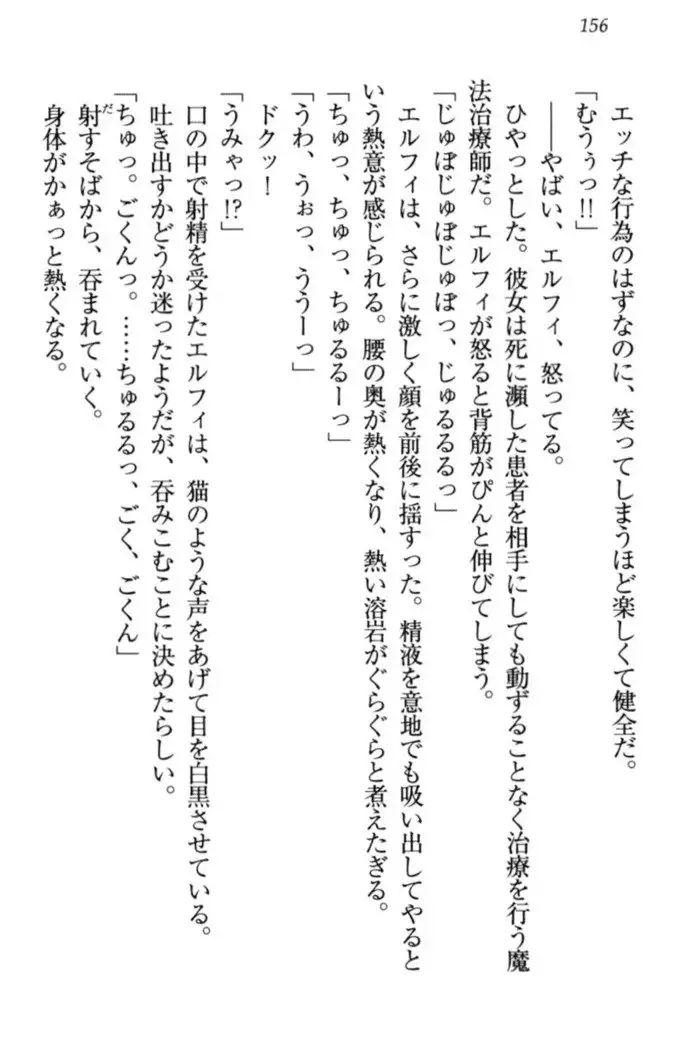 156
エッチな行為のはずなのに、笑ってしまうほど楽しくて健全だ。
「むうぅっ!!」
――やばい、エルフィ、怒ってる。
ひやっとした。彼女は死に瀕した患者を相手にしても動ずることなく治療を行う魔
法治療師だ。エルフィが怒ると背筋がぴんと伸びてしまう。
「じゅぽじゅぽじゅぽっ、じゅるるるっ」
エルフィは、さらに激しく顔を前後に揺すった。精液を意地でも吸い出してやると
いう熱意が感じられる。腰の奥が熱くなり、熱い溶岩がぐらぐらと煮えたぎる。
「ちゅっ、ちゅっ、ちゅるるーっ」
「うわ、うぉっ、ううーっ」
ドクッ！
「うみゃっ!?」
口の中で射精を受けたエルフィは、猫のような声をあげて目を白黒させている。
吐き出すかどうか迷ったようだが、呑みこむことに決めたらしい。
「ちゅっ。ごくんっ。……ちゅるるっ、ごく、ごくん」
射すそばから、呑まれていく。
身体がかぁっと熱くなる。